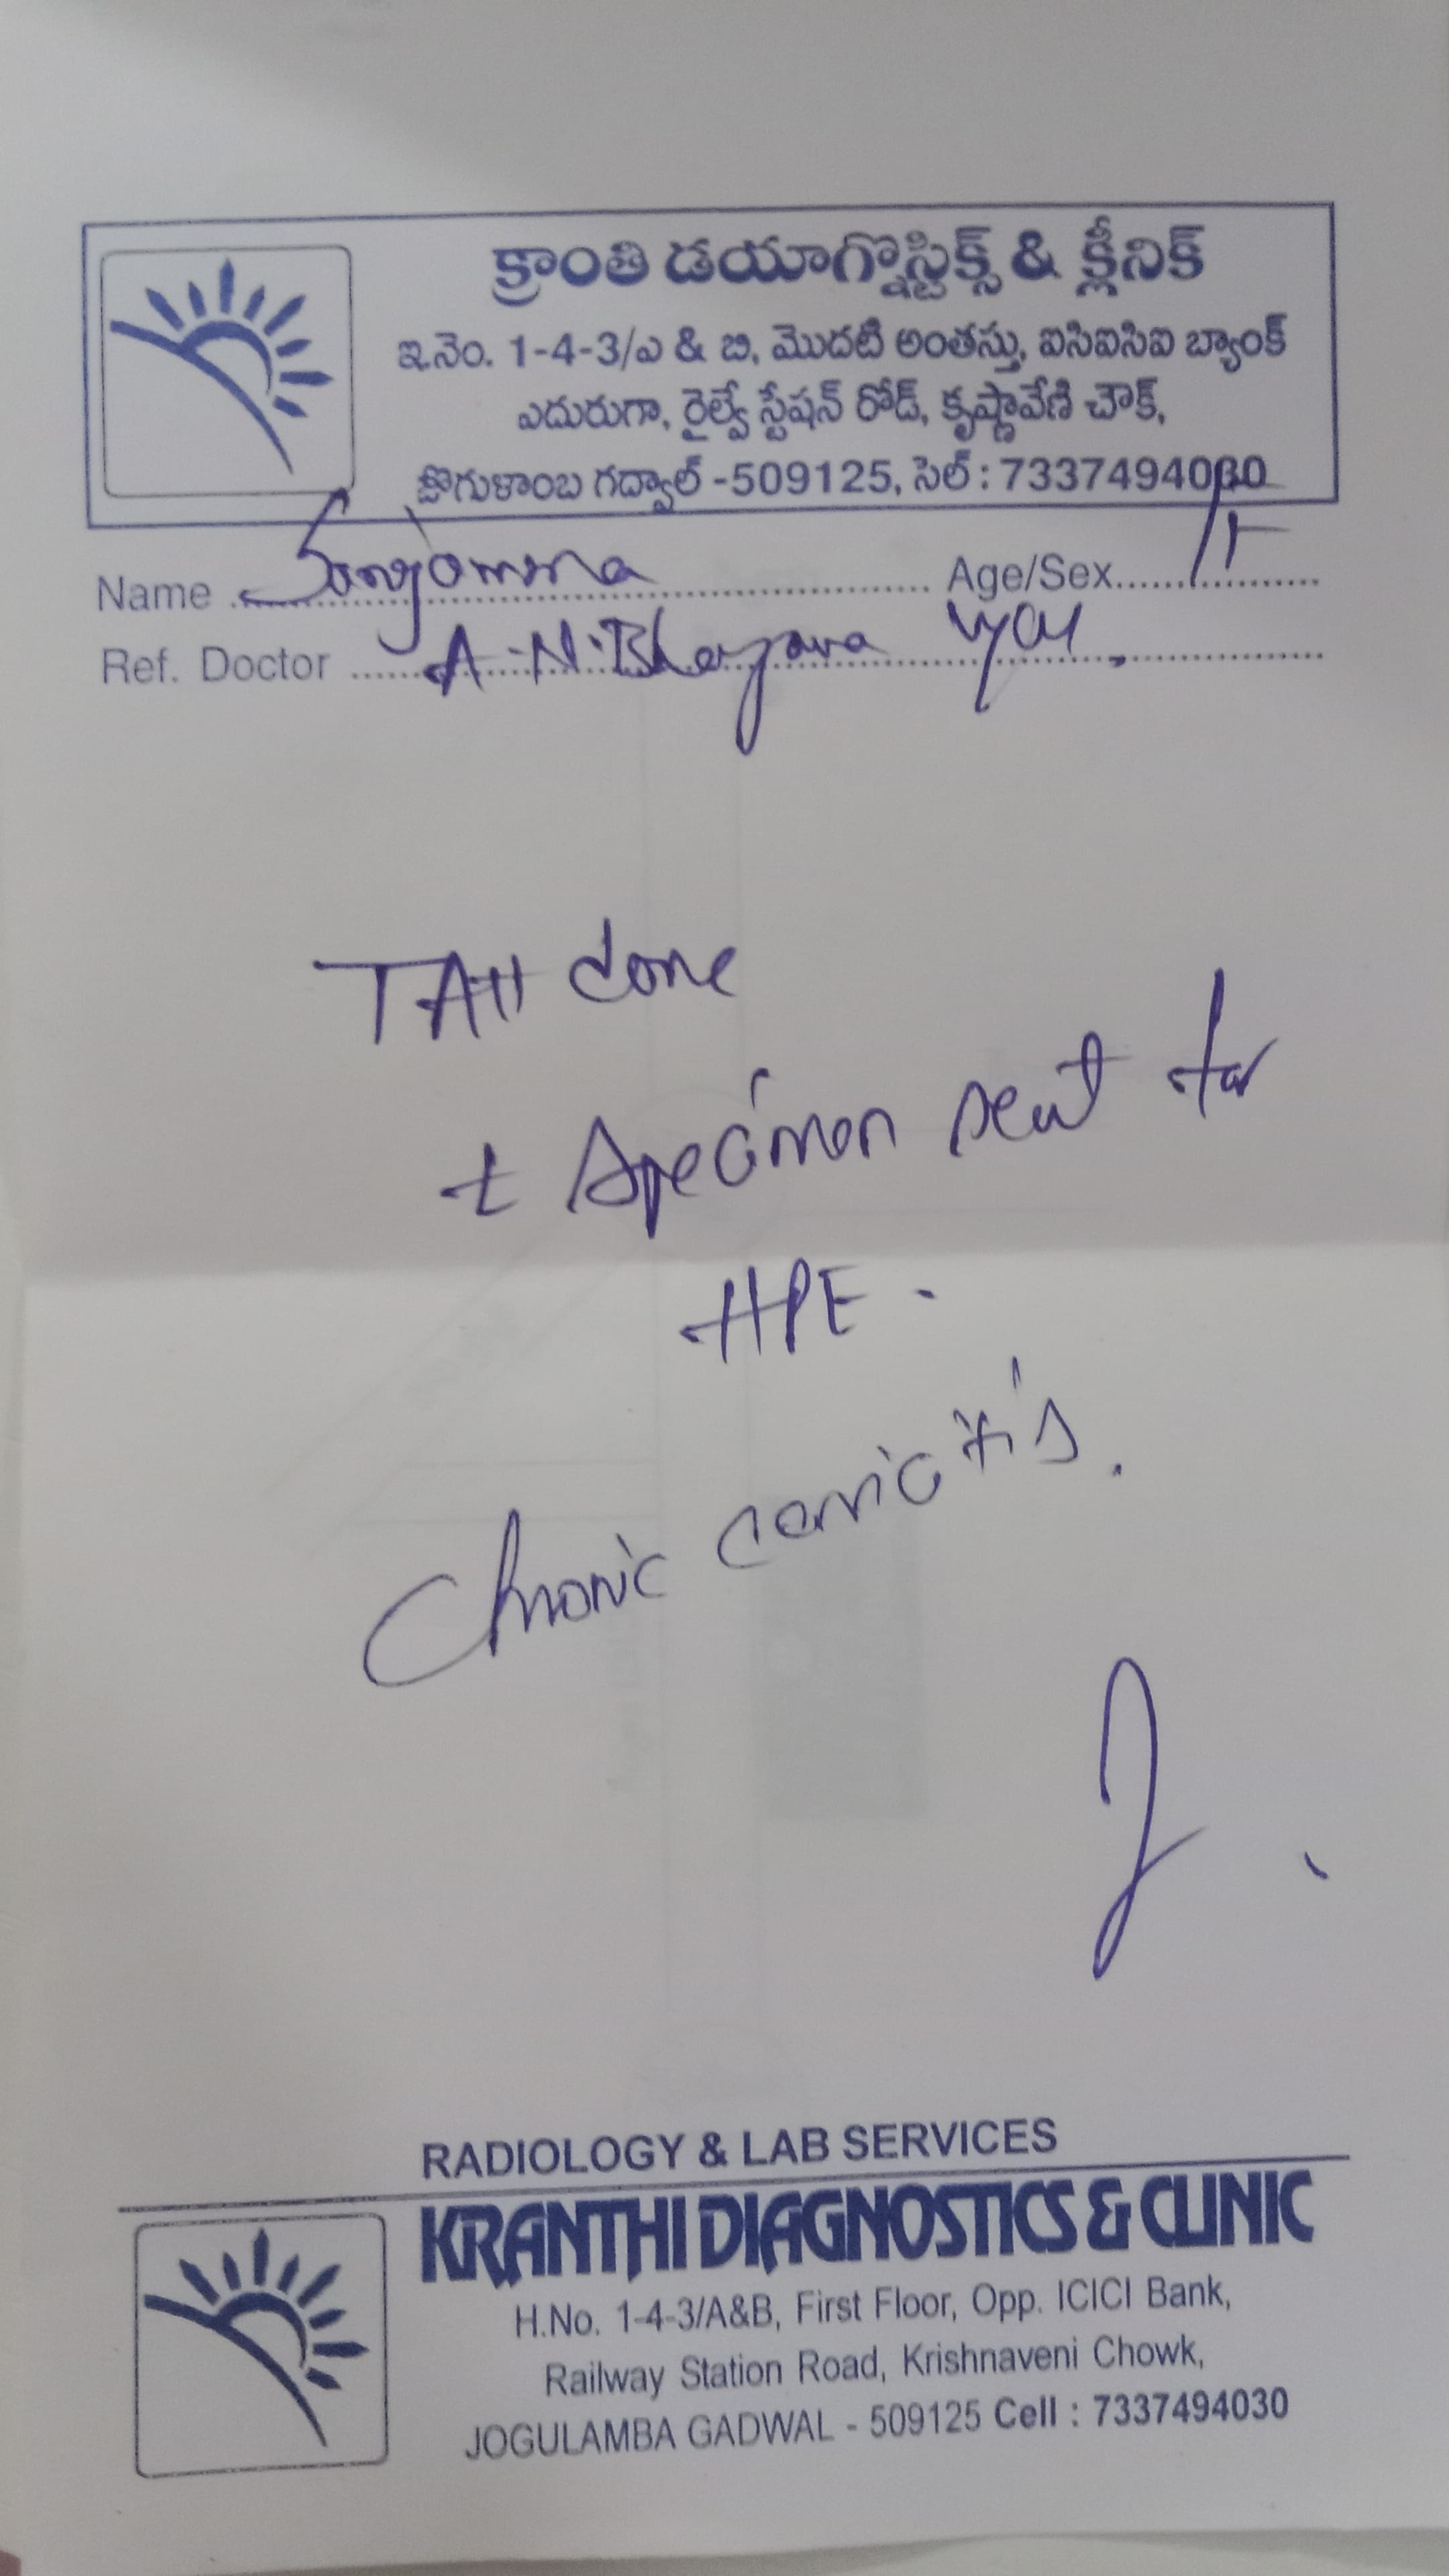 క్రాంతి డయాగ్నొస్టిక్స్ & క్లీనిక్
ఇ.నెం. 1-4-3/ఎ & బి, మొదటి అంతస్తు, ఐసిఐసిఐ బ్యాంక్
ఎదురుగా, రైల్వే స్టేషన్ రోడ్, కృష్ణావేణి చౌక్,
జొగుళాంబ గద్వాల్ -509125, సెల్ : 7337494030
Name Age/Sex
Ref. Doctor A.N.Bhargava
TAH done
& specimen sent for
HPE.
Chronic cervicitis.
RADIOLOGY & LAB SERVICES
KRANTHI DIAGNOSTICS & CLINIC
H.No. 1-4-3/A&B, First Floor, Opp. ICICI Bank,
Railway Station Road, Krishnaveni Chowk,
JOGULAMBA GADWAL - 509125 Cell : 7337494030